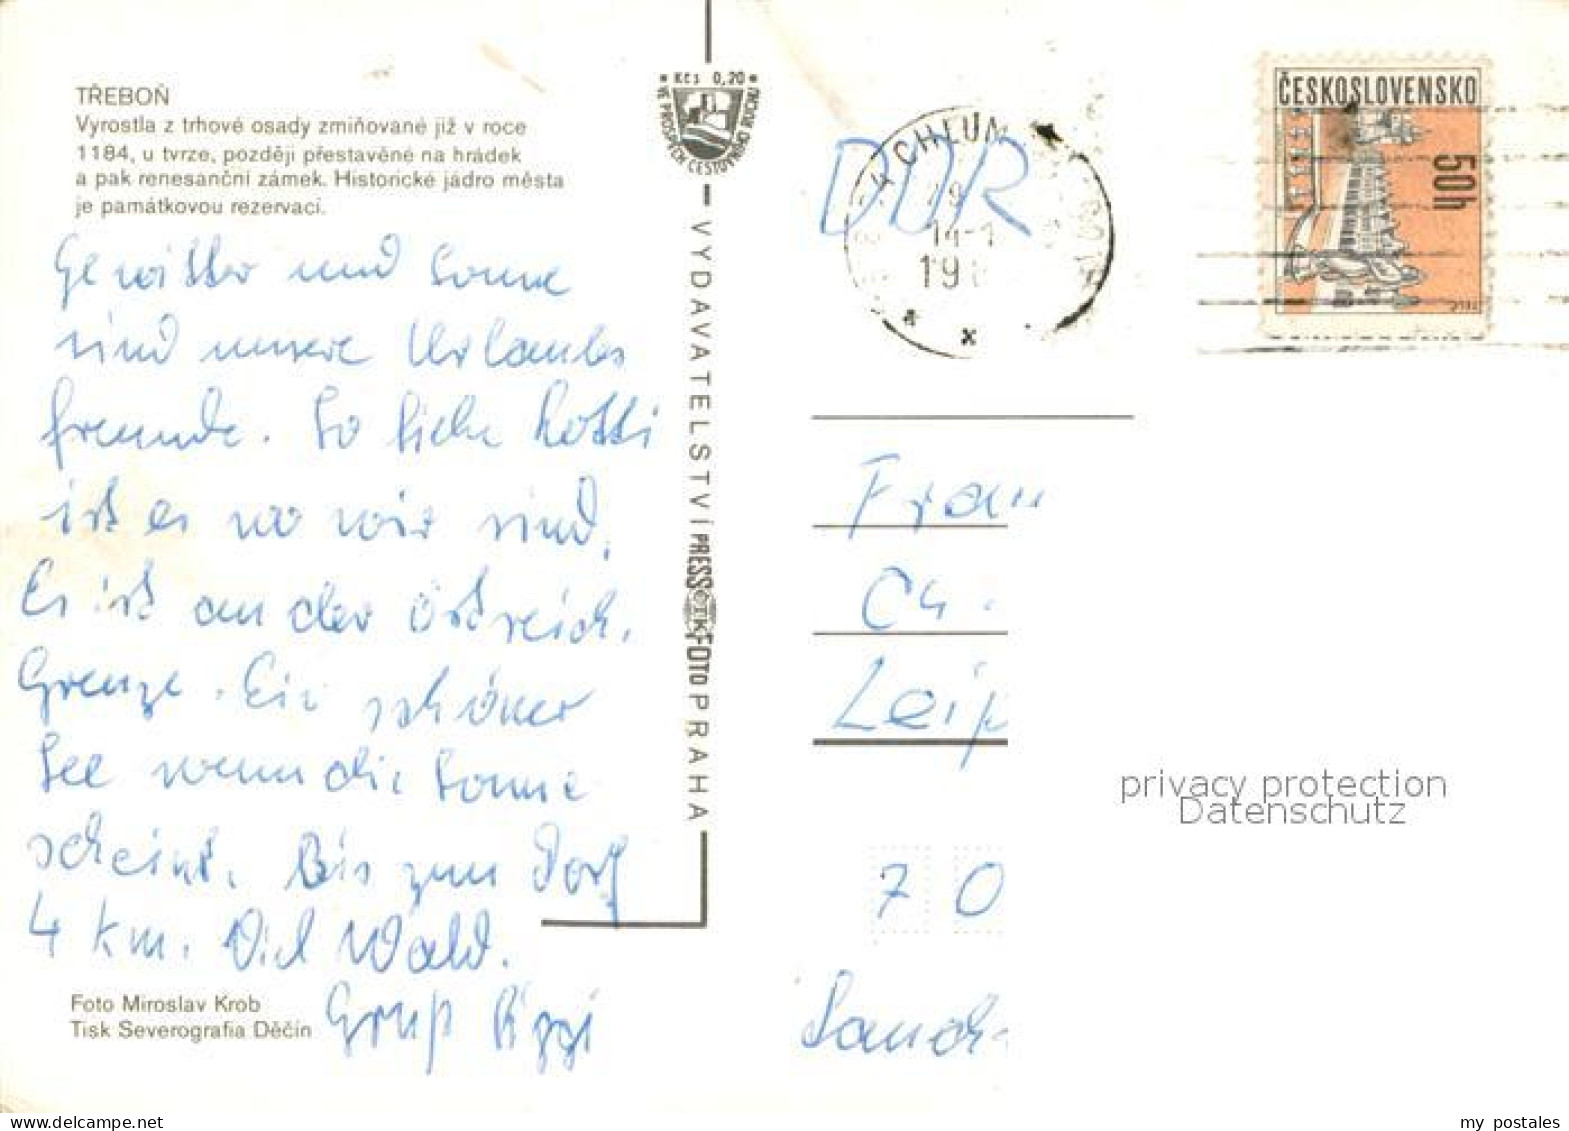 TŘEBOŇ
Vyrostla z trhové osady zmiňované již v roce
1184, u tvrze, později přestavěné na hrádek
a pak renesanční zámek. Historické jádro města
je památkovou rezervací.
Gewitter und Sonne
sind unsere Urlaubs
freunde. So liebe Kotti
ist es wo wir sind.
Es ist an der östreich.
Grenze. Ein schöner
See wenn die Sonne
scheint. Bis zum Dorf
4 km. Viel Wald.
Gruß
Foto Miroslav Krob
Tisk Severografia Děčín
Kčs 0,20
VE PROSPĚCH CESTOVNÍHO RUCHU
VYDAVATELSTVÍ PRESSFOTO PRAHA
DDR
CHLUM
14-1
19
ČESKOSLOVENSKO
50h
Frau
Leip
70
privacy protection
Datenschutz
www.delcampe.net
my_postales